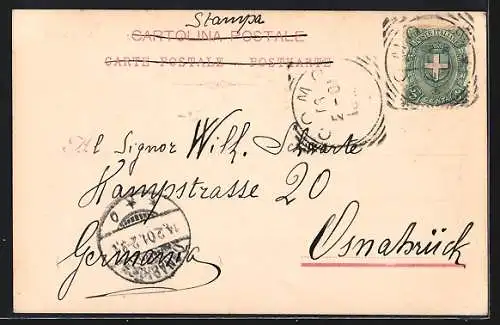 Stampa
CARTOLINA POSTALE
CARTE POSTALE POSTKARTE
COMO
Al Signor Wilh. Schwarte
Hampstrasse 20
Osnabrück
Germania
14.2.01.2-3N